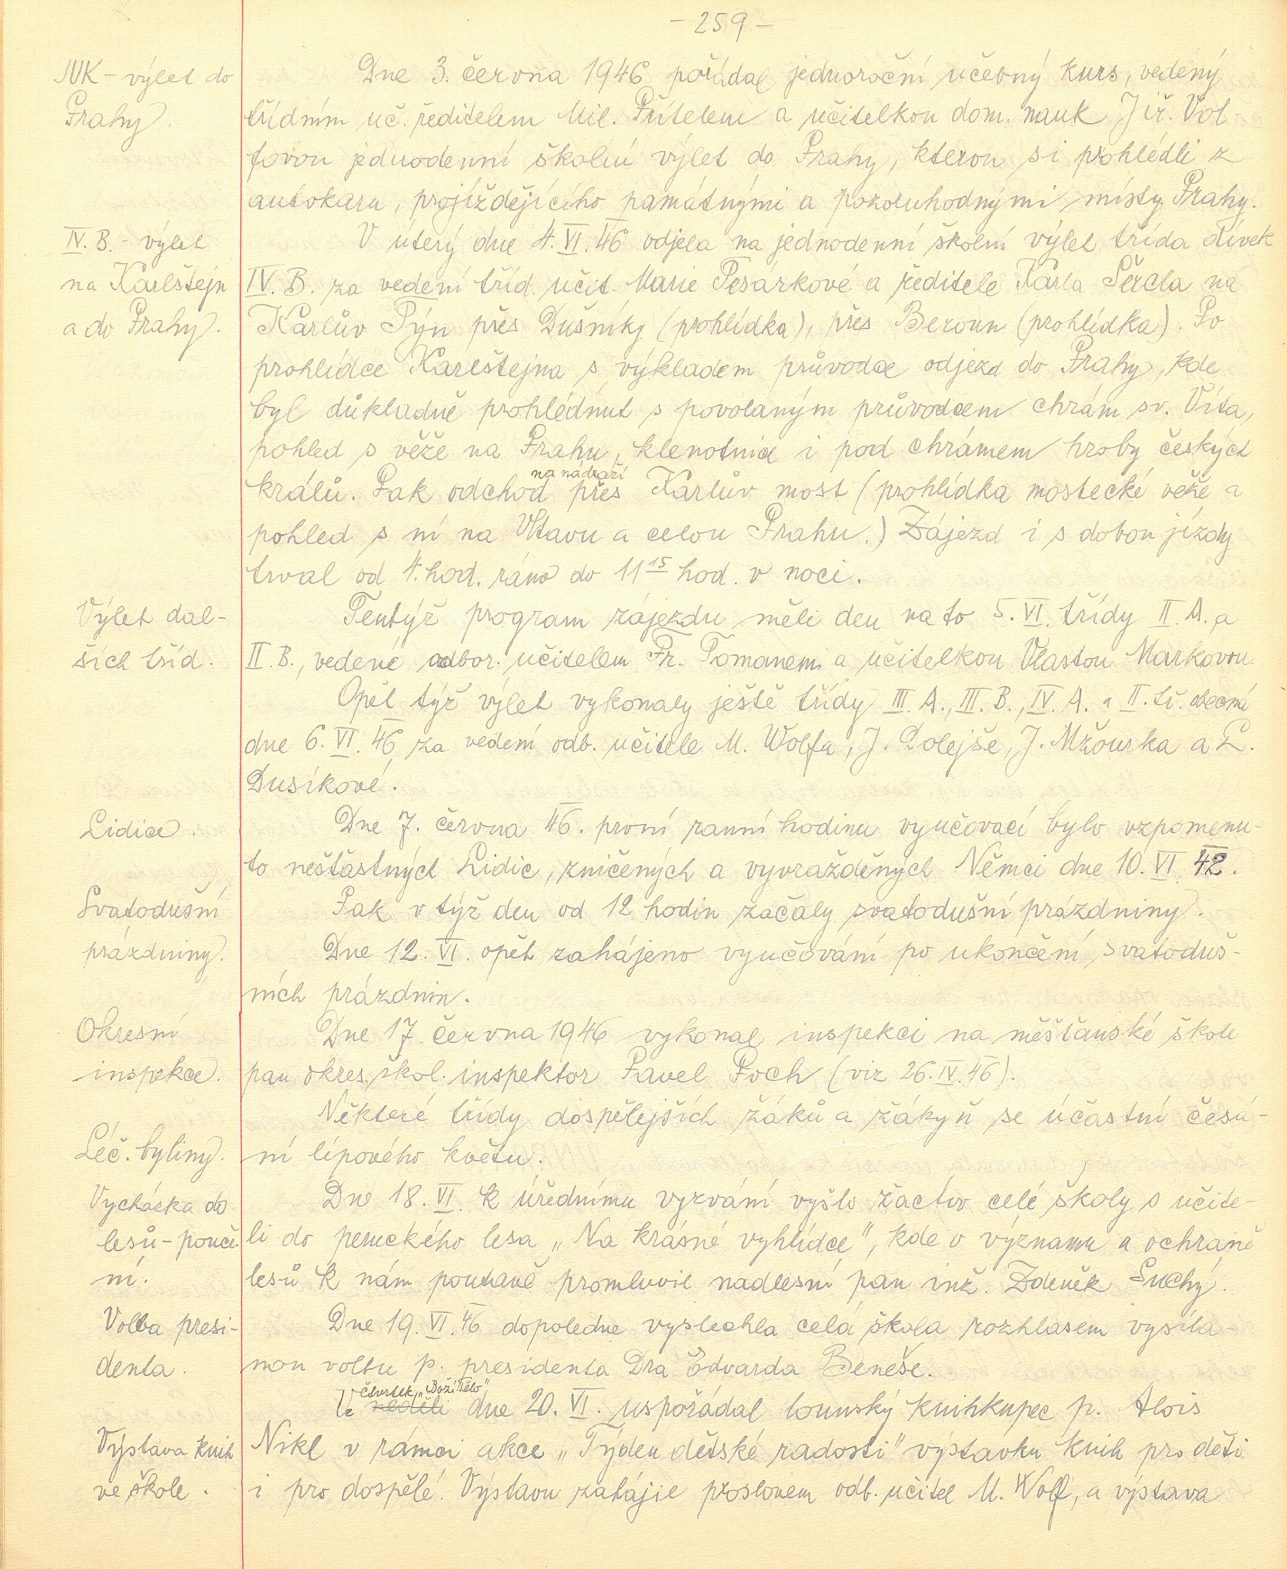 - 259 -
JUK - výlet do
Prahy.
Dne 3. června 1946 pořádal jednoroční učebný kurs, vedený
třídním uč. ředitelem Mil. Přítelem a učitelkou dom. nauk Jiř. Vol-
fovou jednodenní školní výlet do Prahy, kterou si prohlédli z
autokaru, projíždějícího památnými a pozoruhodnými místy Prahy.
IV. B. - výlet
na Karlštejn
a do Prahy.
V úterý dne 4. VI. 46 odjela na jednodenní školní výlet třída dívek
IV. B. za vedení tříd. učit. Marie Pesarkové a ředitele Karla Šercla na
Karlův Týn přes Dušníky (prohlídka), přes Beroun (prohlídka). Po
prohlídce Karlštejna s výkladem průvodce odjezd do Prahy, kde
byl důkladně prohlédnut s povolaným průvodcem chrám sv. Víta,
pohled s věže na Prahu, klenotnice i pod chrámem hroby českých
králů. Pak odchod na nádraží přes Karlův most (prohlídka mostecké věže a
pohled s ní na Vltavu a celou Prahu.) Zájezd i s dobou jízdy
trval od 4. hod. ráno do 11 15 hod. v noci.
Výlet dal-
ších tříd.
Tentýž program zájezdu měli den na to 5. VI. třídy II. A. a
II. B., vedené odbor. učitelem Fr. Tomanem a učitelkou Vlastou Markovou.
Opět týž výlet vykonaly ještě třídy III. A., III. B., IV. A. a II. tř. obecní
dne 6. VI. 46 za vedení odb. učitele M. Wolfa, J. Dolejše, J. Mžourka a L.
Dusíkové.
Lidice.
Dne 7. června 46. první ranní hodinu vyučovací bylo vzpomenu-
to nešťastných Lidic, zničených a vyvražděných Němci dne 10. VI. 42.
Svatodušní
prázdniny.
Pak v týž den od 12 hodin začaly svatodušní prázdniny.
Dne 12. VI. opět zahájeno vyučování po ukončení svatoduš-
ních prázdnin.
Okresní
inspekce.
Dne 17. června 1946 vykonal inspekci na měšťanské škole
pan okres. škol. inspektor Pavel Poch (viz 26. IV. 46).
Některé třídy dospělejších žáků a žákyň se účastní česá-
Léč. byliny.
ní lipového květu.
Vycházka do
lesů - pouče-
ní.
Dne 18. VI. k úřednímu vyzvání vyšlo žactvo celé školy s učite-
li do peruckého lesa „Na krásné vyhlídce", kde o významu a ochraně
lesů k nám poutavě promluvil nadlesní pan inž. Zdeněk Suchý.
Volba presi-
denta.
Dne 19. VI. 46 dopoledne vyslechla celá škola rozhlasem vysíla-
nou volbu p. presidenta Dra Edvarda Beneše.
Ve neděli čtvrtek „Boží Tělo" dne 20. VI. uspořádal lounský knihkupec p. Alois
Výstava knih
ve škole.
Nikl v rámci akce „Týden dětské radosti" výstavku knih pro děti
i pro dospělé. Výstavu zahájil proslovem odb. učitel M. Wolf, a výstava